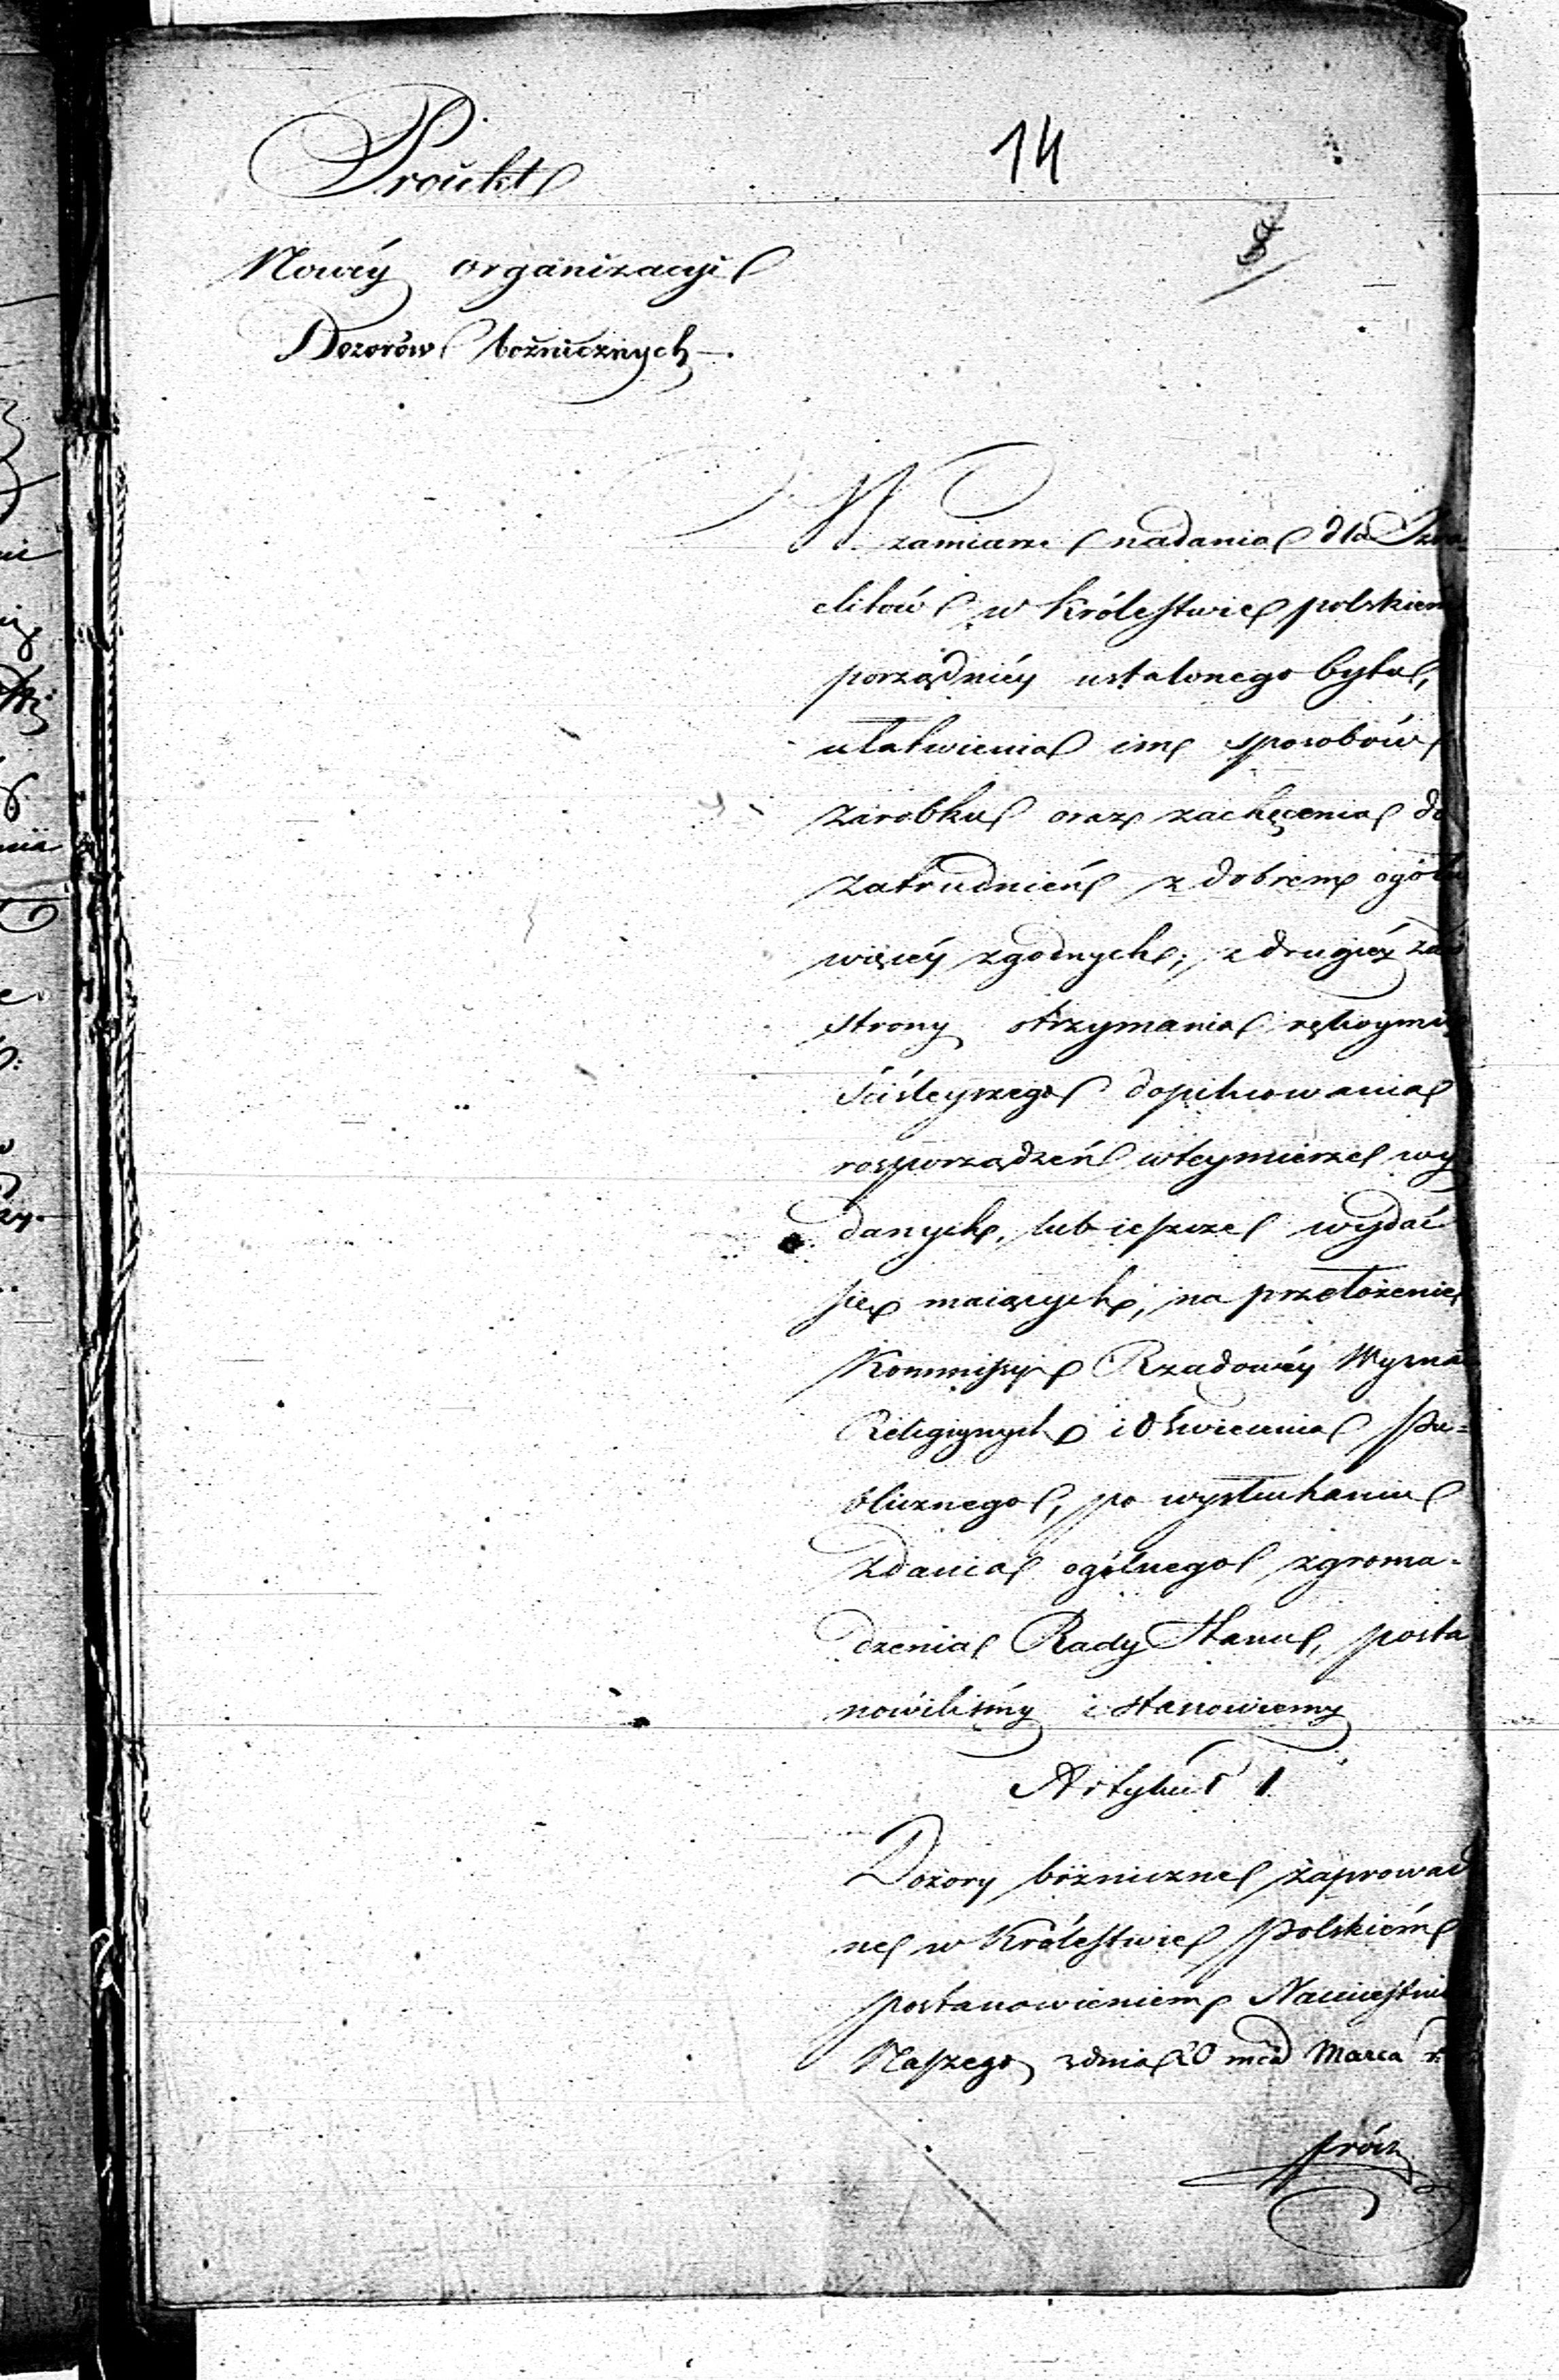 Proiekt
14
8
Nowéy organizacyi
Dozorów bożnicznych.
W zamiarze nadania dla Izra
elitów w Królestwie polskiem
porządniéy ustalonego bytu,
ułatwienia im sposobów
zarobku oraz zachęcenia do
zatrudnień z dobrem ogółu
więcéy zgodnych; z drugiéy zaś
strony otrzymania rękoymi
ściśleyszego dopilnowania
rosporządzeń wteymierze wy
danych, lub ieszcze wydać
się maiących, na przełożenie
Kommissyi Rządowéy Wyznań
Religiynych i Oświecenia Pu=
blicznego, po wysłuchaniu
Zdania ogólnego zgroma-
dzenia Rady Stanu, posta
nowiliśmy i stanowiemy
Artykuł 1
Dozory bóżniczne zaprowad
ne w Królestwie Polskiém
postanowieniem Namiestni
Naszego zdnia 20 mca Marca r.